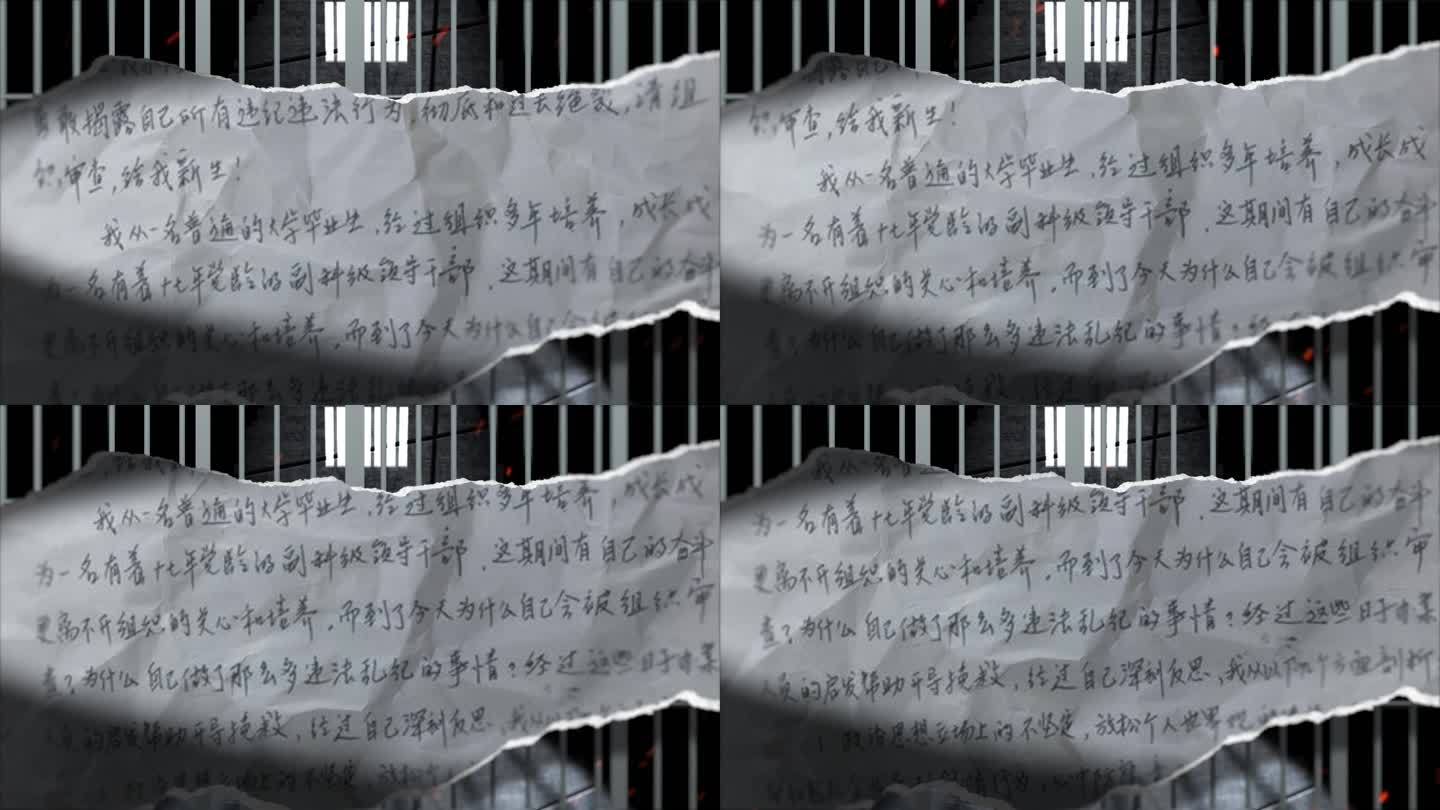 勇敢揭露自己所有违纪违法行为,彻底和过去绝裂,请组
织审查,给我新生!
我从一名普通的大学毕业生,经过组织多年培养,成长成
为一名有着十七年党龄的副科级领导干部,这期间有自己的奋斗
更离不开组织的关心和培养,而到了今天为什么自己会
织审查,给我新生!
我从一名普通的大学毕业生,经过组织多年培养,成长成
为一名有着十七年党龄的副科级领导干部,这期间有自己的奋斗
更离不开组织的关心和培养,而到了今天为什么自己会被组织审
查?为什么自己做了那么多违法乱纪的事情?
我从一名普通的大学毕业生,经过组织多年培养,成长成
为一名有着十七年党龄的副科级领导干部,这期间有自己的奋斗
更离不开组织的关心和培养,而到了今天为什么自己会被组织审
查?为什么自己做了那么多违法乱纪的事情?经过这些日子
人员的启发帮助开导挽救,经过自己深刻反思,我从以
为一名有着十七年党龄的副科级领导干部,这期间有自己的奋斗
更离不开组织的关心和培养,而到了今天为什么自己会被组织审
查?为什么自己做了那么多违法乱纪的事情?经过这些日子
人员的启发帮助开导挽救,经过自己深刻反思,我从以下几个方面剖析
政治思想立场上的不坚定,放松个人世界观